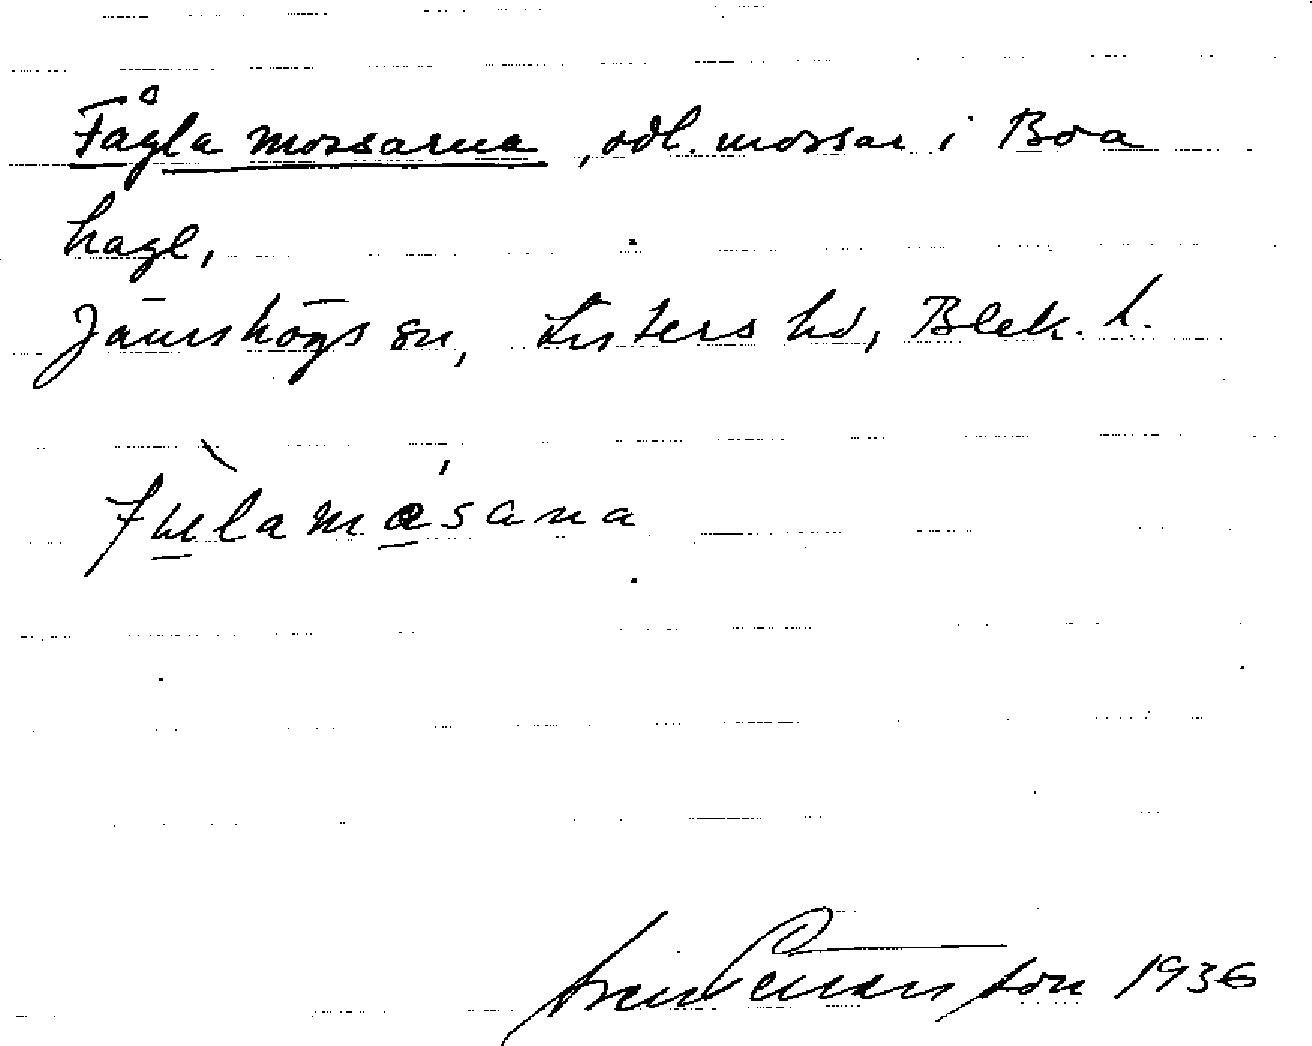 Fågla mossarna, odl. mossar i Boa
hage,
Jämshögs sn, Listers hd, Blek. l.
fùlamǿsana
1936